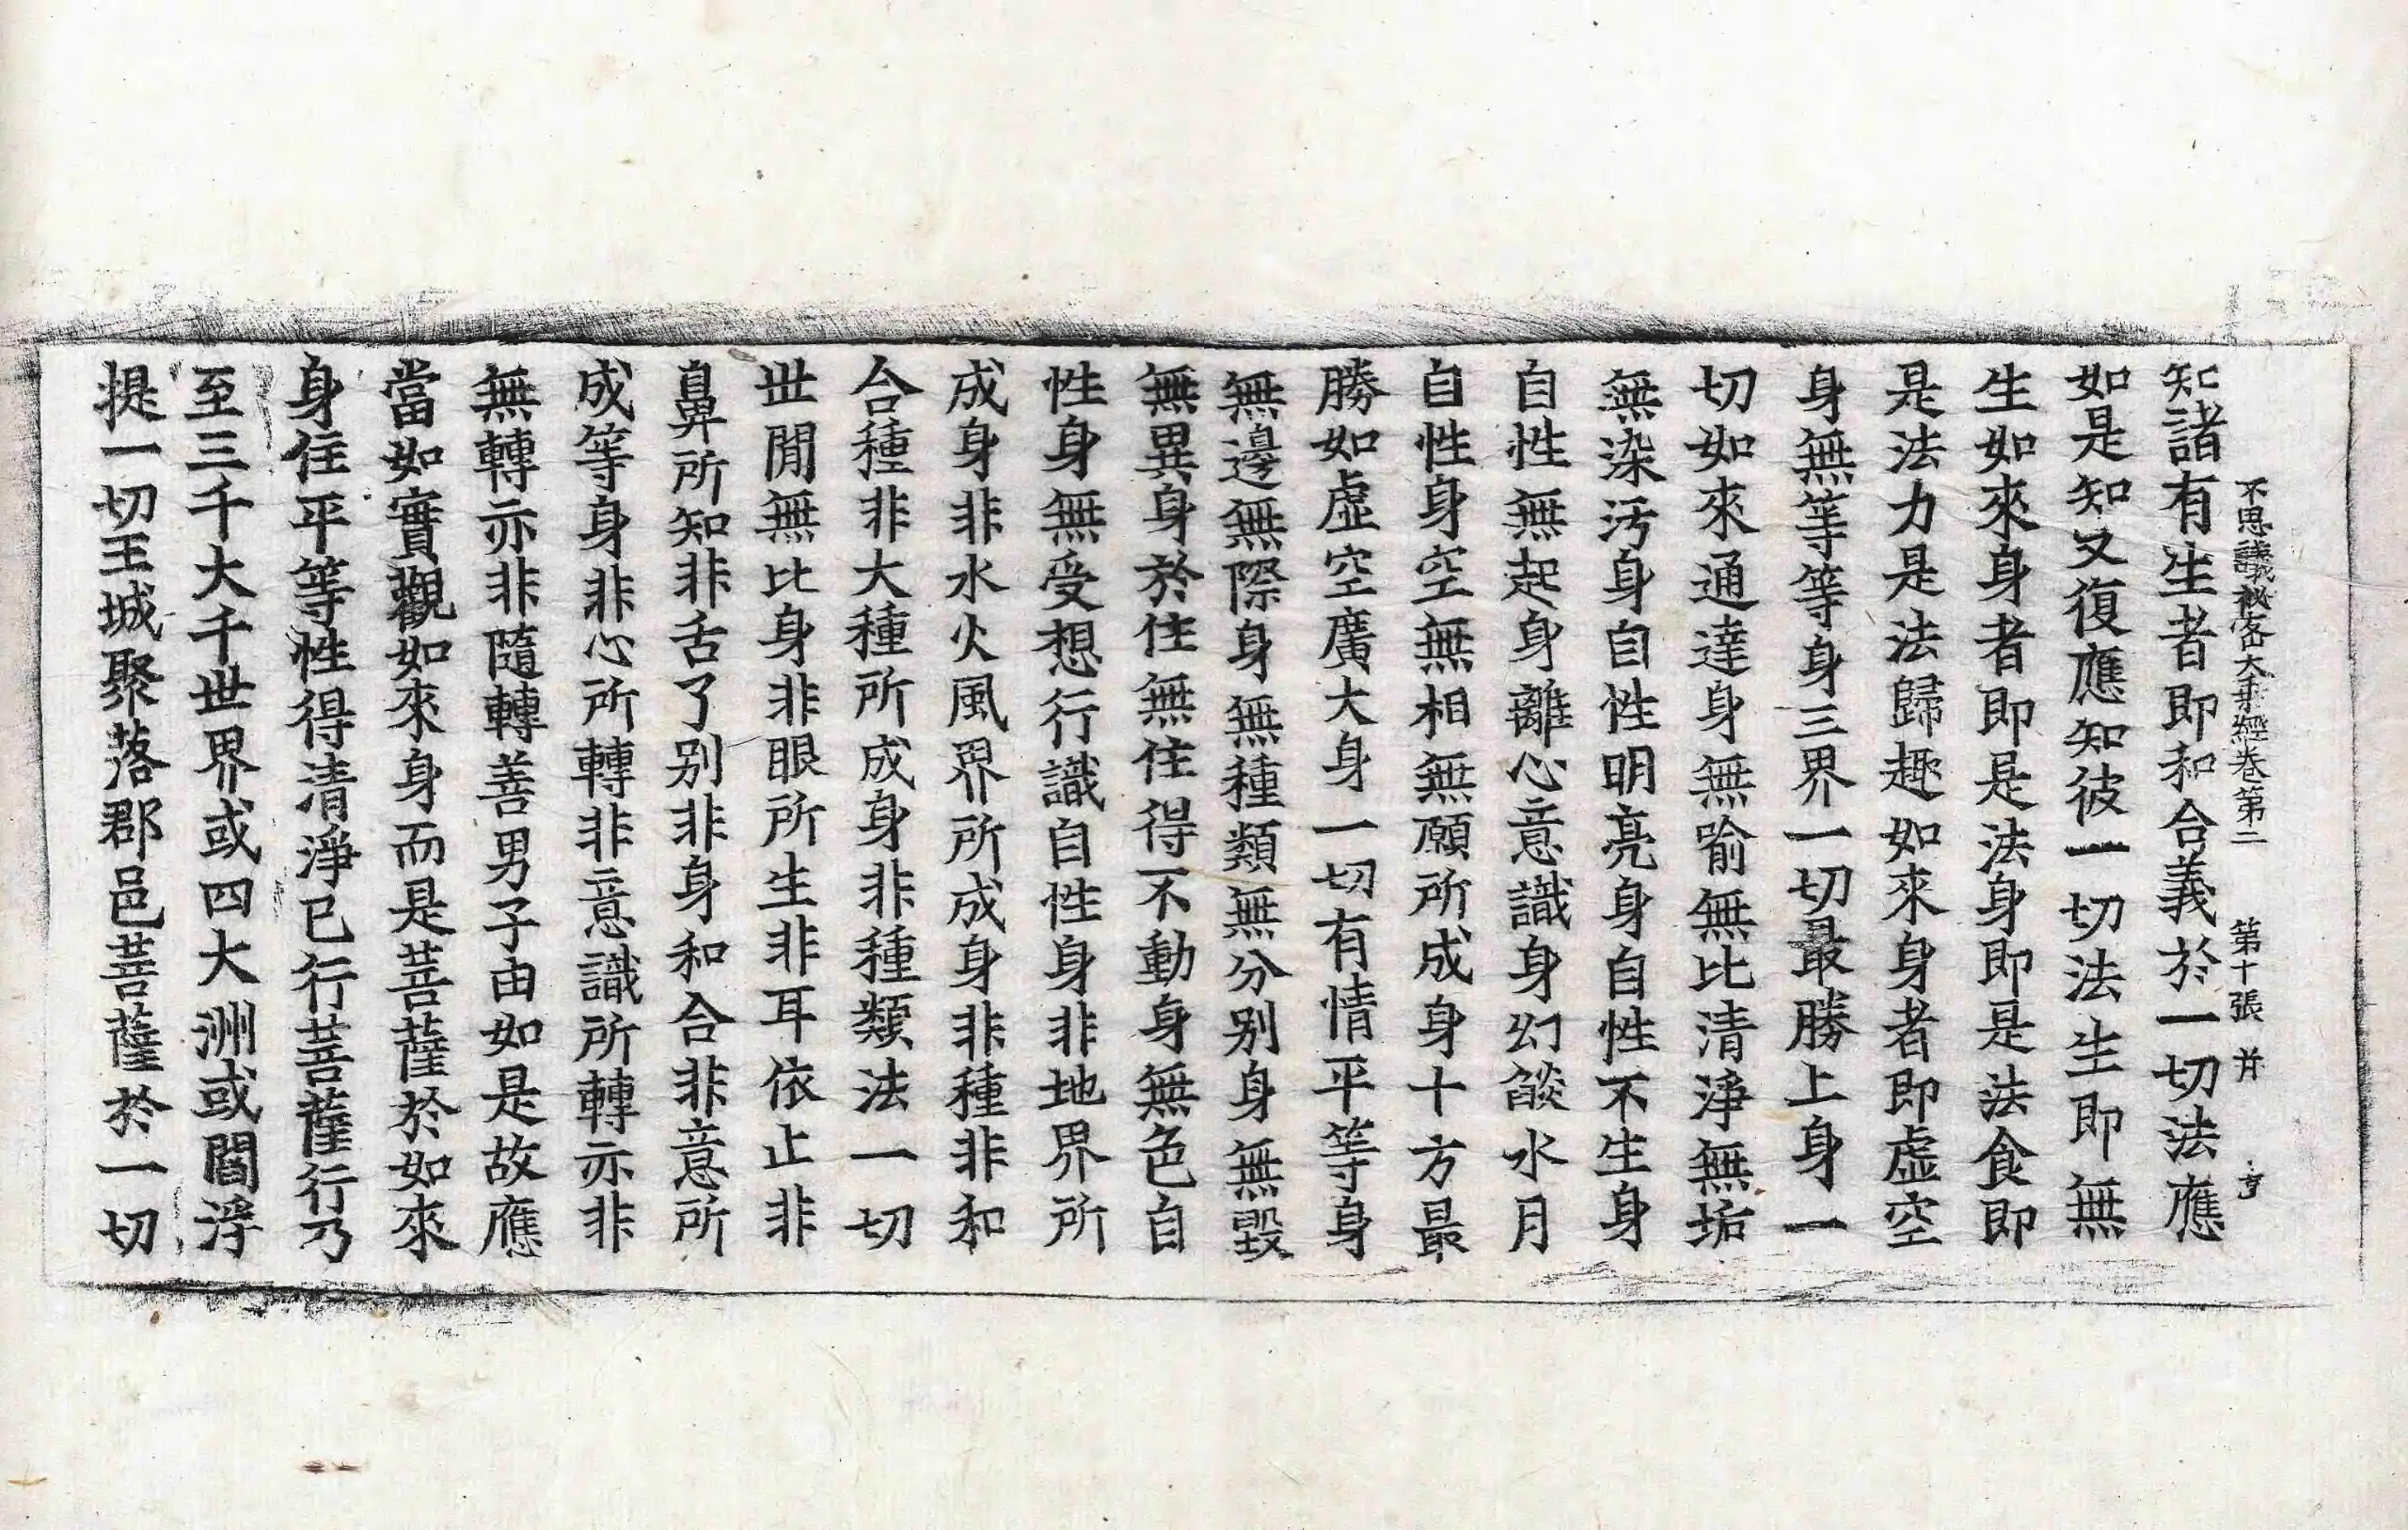 不思議祕密大乘經卷第二　第十張　幷　亨
知諸有生者即和合義於一切法應
如是知又復應知彼一切法生即無
生如來身者即是法身即是法食即
是法力是法歸趣如來身者即虛空
身無等等身三界一切最勝上身一
切如來通達身無喻無比清淨無垢
無染污身自性明亮身自性不生身
自性無起身離心意識身幻燄水月
自性身空無相無願所成身十方最
勝如虛空廣大身一切有情平等身
無邊無際身無種類無分别身無毀
無異身於住無住得不動身無色自
性身無受想行識自性身非地界所
成身非水火風界所成身非種非和
合種非大種所成身非種類法一切
世間無比身非眼所生非耳依止非
鼻所知非舌了别非身和合非意所
成等身非心所轉非意識所轉亦非
無轉亦非隨轉善男子由如是故應
當如實觀如來身而是菩薩於如來
身住平等性得清淨已行菩薩行乃
至三千大千世界或四大洲或閻浮
提一切王城聚落郡邑菩薩於一切